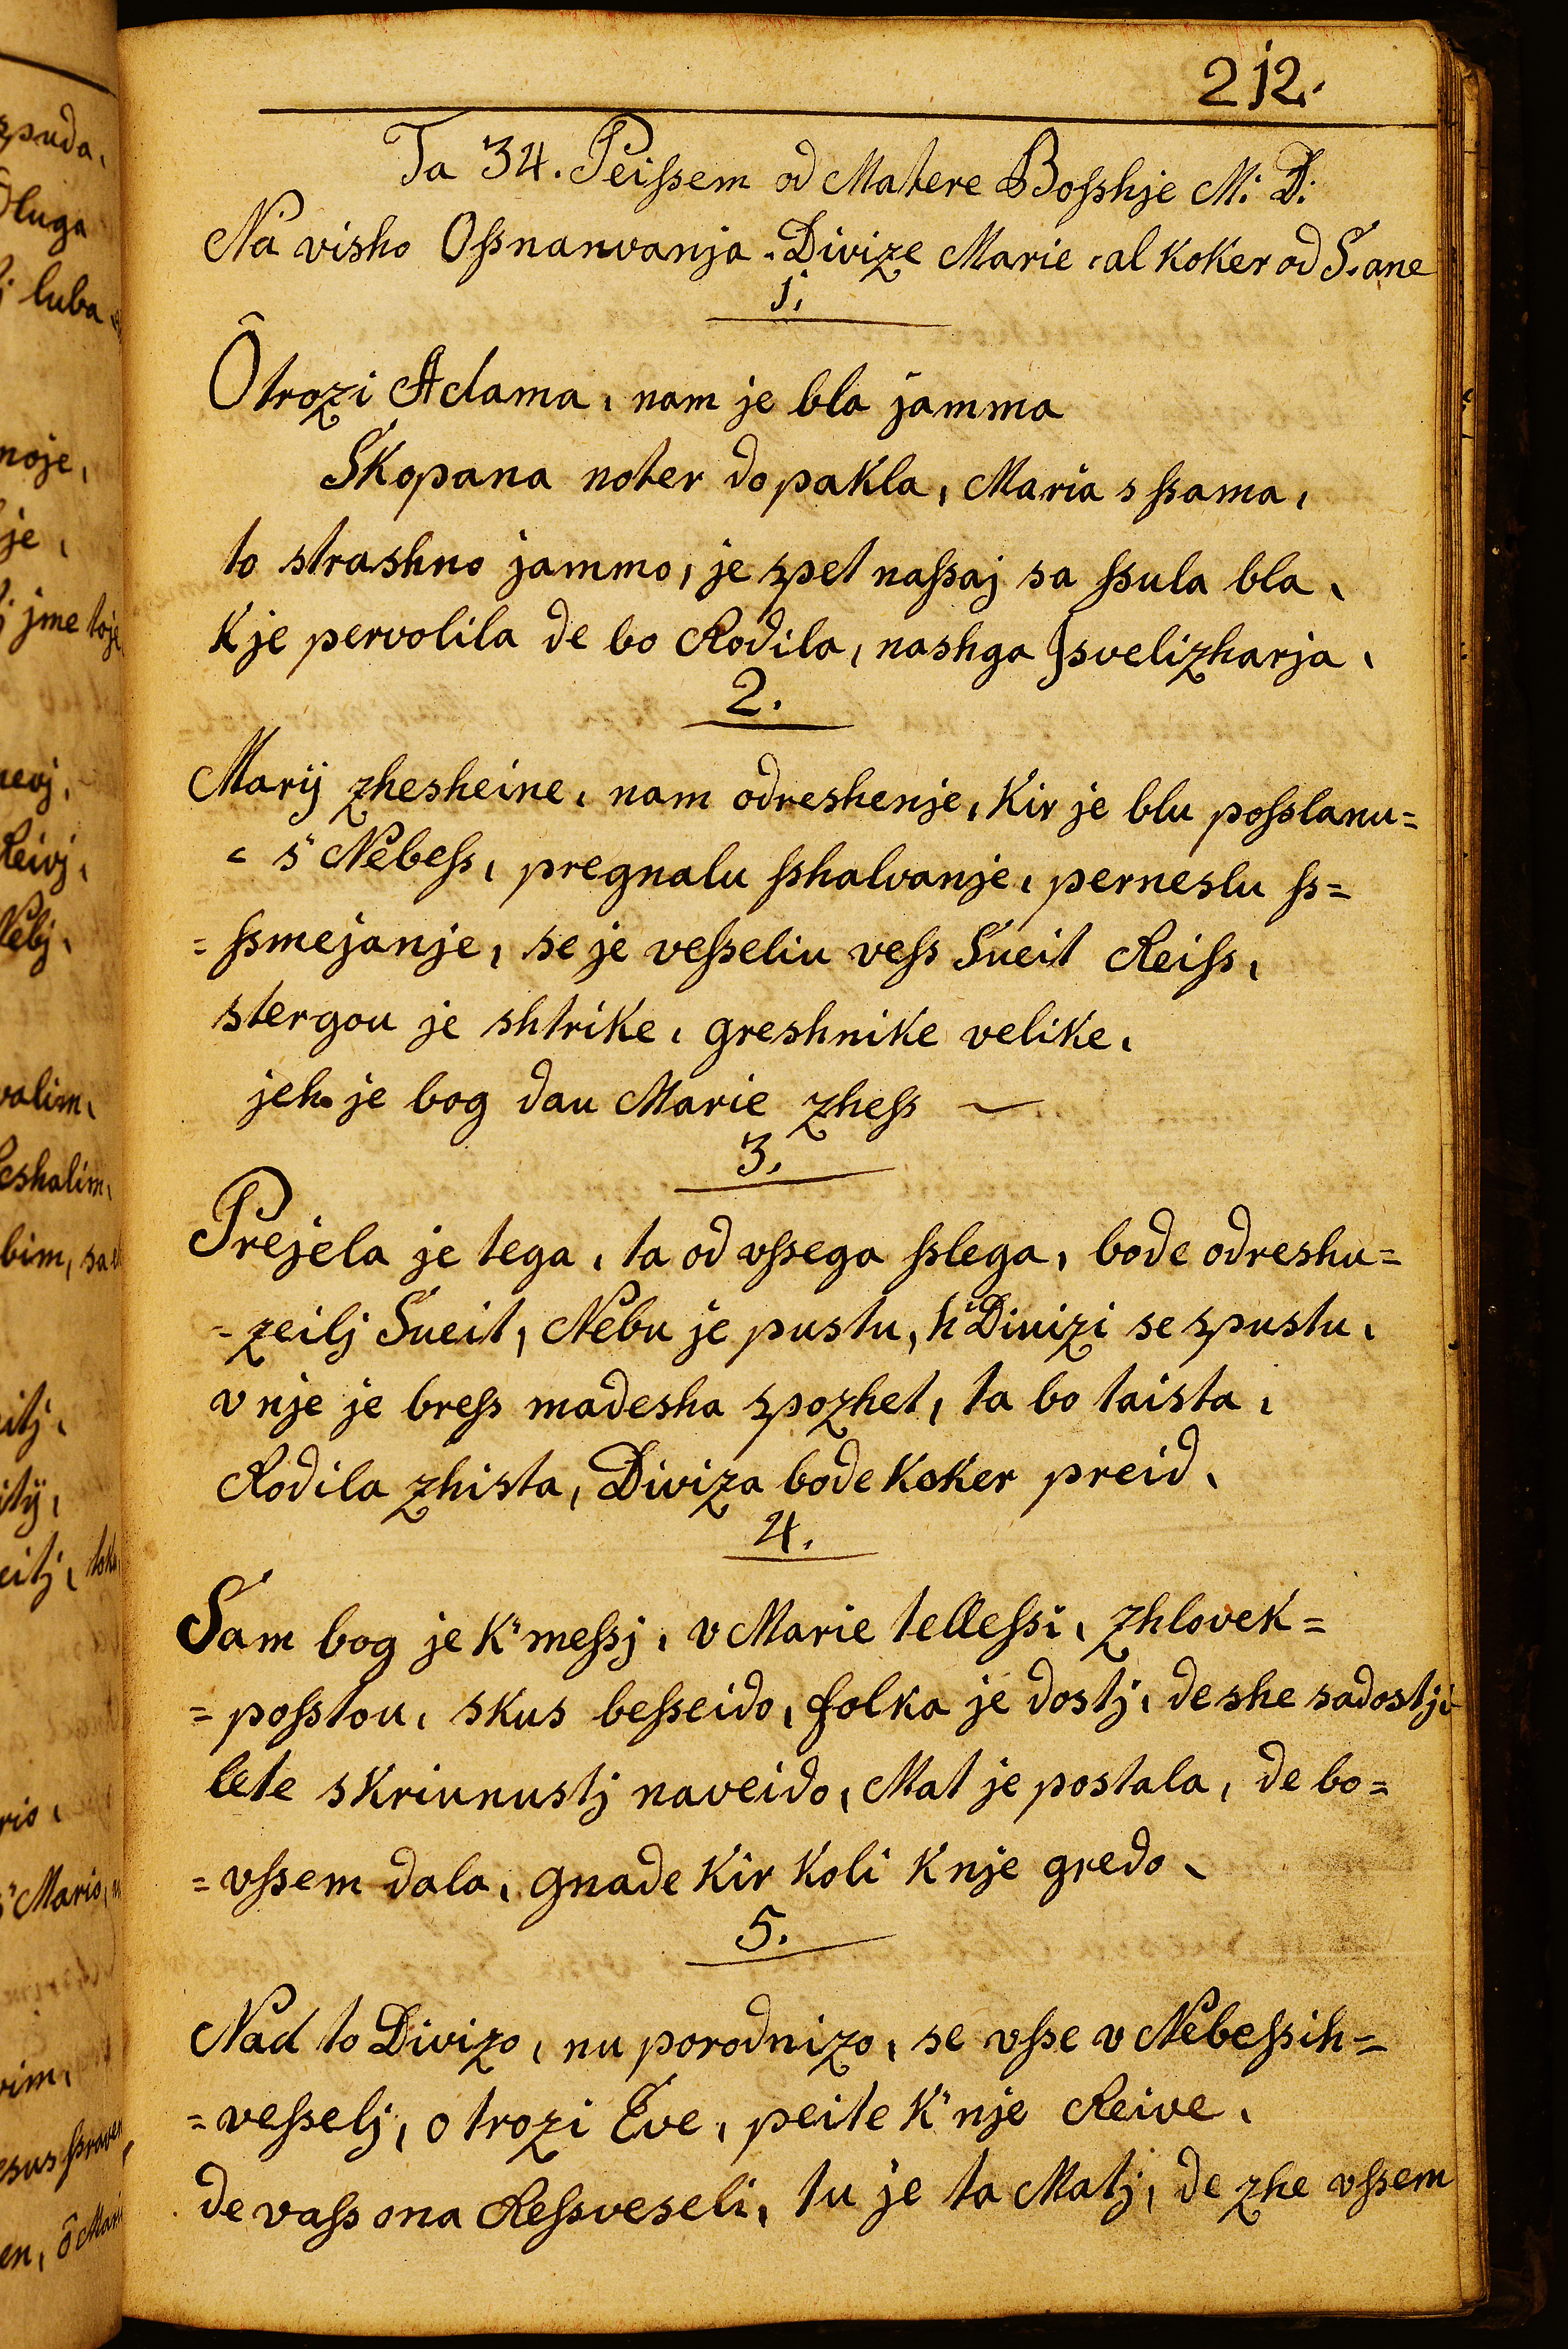 212.
Ta 34. Peiſsem od Matere Boſshje M: D:
Na visho Oſsnanvanja. Divize Marie, al koker od S. ane
1.
Ôtrozi Adama, nam je bla jamma
Skopana noter do pakla, Maria s ſsama,
to strashno jammo, je spet naſsaj sa ſsula bla,
k je pervolila de bo Rodila, nashga Jsvelizharja,
2.
Marij zhesheine, nam odreshenje, kir je blu poſslanu=
= s' Nebeſs, pregnalu ſshalvanje, perneslu ſs=
= ſsmejanje, se je veſseliu veſs Sueit Reiſs,
stergou je shtrike, greshnike velike,
jeh je bog dau Marie zheſs
3.
Prejela je tega, ta od vſsega ſslega, bode odreshu=
= zeilj Sueit, Nebu je pustu, h' Diuizi se spustu,
v nje je breſs madesha spozhet, ta bo taista,
Rodila zhista, Diviza bode koker preid,
4.
Sam bog je k' meſsj, v Marie telleſsi, zhlovek=
= poſstou, skus beſseido, folka je dostj, de she sadostj
lete skriunustj naveido, Mat je postala, de bo=
= vſsem dala, gnade kir koli k nje gredo,
5.
Nad to Divizo, nu porodnizo, se vſse v Nebeſsih=
= veſselj, o trozi Eve, peite k' nje Reive,
de vaſs ona Reſsveseli, tu je ta Matj, de zhe vſsem
zpuda,
luba
noje,
je,
j jme toje
Reivj,
Nebj,
valim,
eshalim,
bim, sa
eitj,
rio,
s' Mario,
esus ſsraven
en, ô Mari